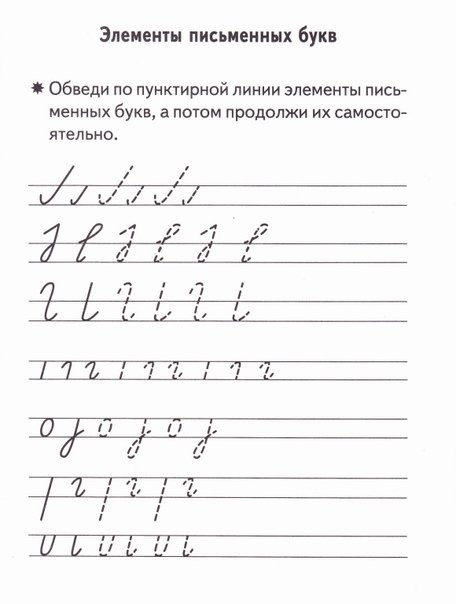 Элементы письменных букв
✷ Обведи по пунктирной линии элементы пись-
менных букв, а потом продолжи их самосто-
ятельно.